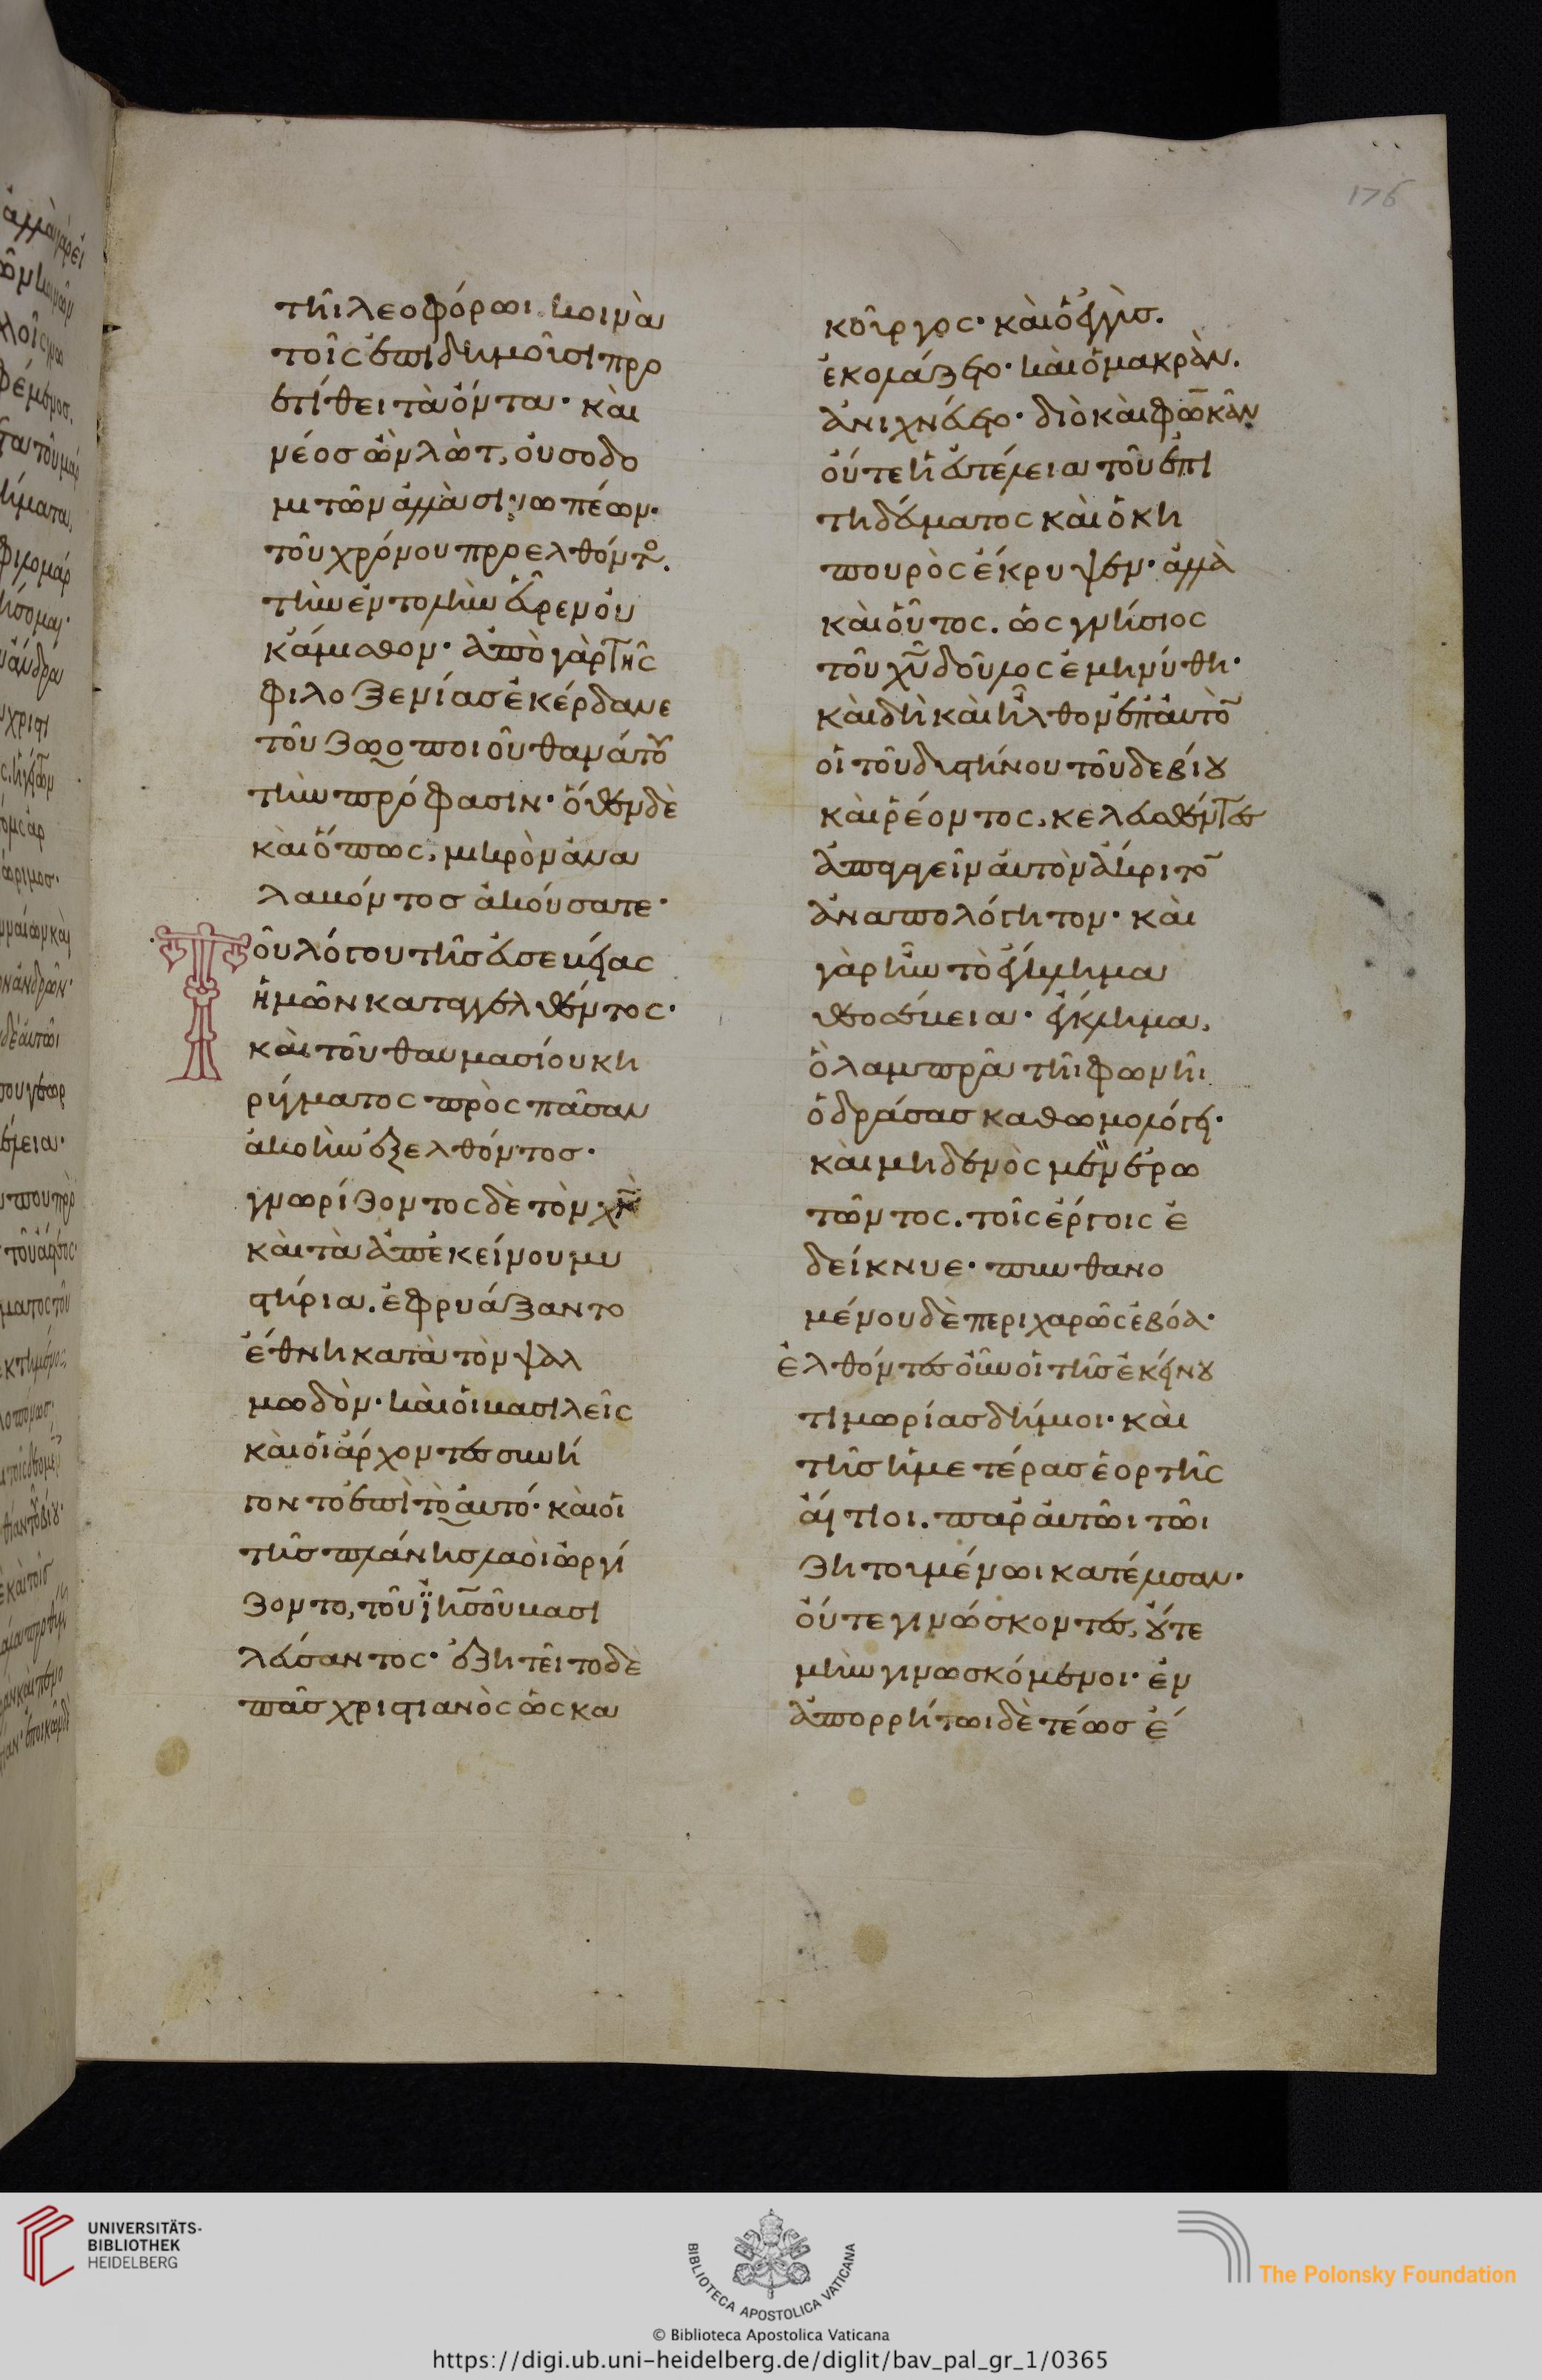 τῆι λεοφόρωι. κοινὰ
τοῖς ἐπιδημοῦσι προ
ετίθει τὰ ὄντα· καὶ
νέος ὢν λὼτ, οὐ σοδο
μιτῶν ἀλλὰ σινωπέων·
τοῦ χρόνου προελθόντο.
τὴν ἐντολὴν εὗρεν οὐ
κ ἄμισθον· ἀπὸ γὰρ τῆς
φιλοξενίας ἐκέρδανε
τοῦ ζωοποιοῦ θανάτου
τὴν πρόφασιν· ὅθεν δὲ
καὶ ὅπως, μικρὸν ἀνα
λαβόντος ἀκούσατε·
Τοῦ λόγου τῆς εὐσεβείας
ἡμῶν καταγγελθέντος·
καὶ τοῦ θαυμασίου κη
ρύγματος πρὸς πᾶσαν
ἀκοὴν ἐξελθόντος·
γνωρίζοντος δὲ τὸν χν̄
καὶ τὰ ἀπ' ἐκείνου μυ
στήρια. ἐφρυάξαντο
ἔθνη κατὰ τὸν ψαλ
μωδὸν· καὶ οἱ βασιλεῖς
καὶ οἱ ἄρχοντες συνή
γοντο ἐπὶ τὸ αὐτό· καὶ οἱ
τῆς πλάνης λαοὶ ὠργί
ζοντο, τοῦ ἰησοῦ βασι
λεύσαντος· ἐζητεῖτο δὲ
πᾶς χριστιανὸς ὡς κα
κοῦργος· καὶ ὁ ἐγγὺς.
ἐκολάζετο· καὶ ὁ μακρὰν.
ἀνιχνεύετο· διὸ καὶ φωκᾶν
οὔτε ἡ εὐτέλεια τοῦ ἐπι
τηδεύματος καὶ ὁ κη
πουρὸς ἔκρυψεν· ἀλλὰ
καὶ οὗτος. ὡς γνήσιος
τοῦ χῡ δοῦλος ἐμηνύθη·
καὶ δὴ καὶ ἦλθον ἐπ' αὐτὸν
οἱ τοῦ δυστήνου τοῦδε βίου
καὶ ῥέοντος, κελευσθέντες
αὐτὸν ἄκριτον
ἀναπολόγητον· καὶ
γὰρ ἦν τὸ ἔγκλημα
θεοσέβεια· ἔγκλημα,
ὃ λαμπρᾶ τῆι φωνῆι
ὁ δράσας καθωμολόγει·
καὶ μηδενὸς μὲν ἐρω
τῶντος. τοῖς ἔργοις ἐ
δείκνυε· πυνθανο
μένου δὲ περιχαρῶς ἐβόα·
ἐλθόντες οὖν οἱ τῆς ἐκείνου
τιμωρίας δήμιοι· καὶ
τῆς ἡμετέρας ἑορτῆς
αἴτιοι. παρ' αὐτῶι τῶι
ζητουμένωι κατέλυσαν·
οὔτε γινώσκοντες, οὔτε
μὴν γινωσκόμενοι· ἐν
ἀπορρήτωι δὲ τέως ἐ
176
UNIVERSITÄTS-
BIBLIOTHEK
HEIDELBERG
BIBLIOTECA APOSTOLICA VATICANA
The Polonsky Foundation
© Biblioteca Apostolica Vaticana
https://digi.ub.uni-heidelberg.de/diglit/bav_pal_gr_1/0365